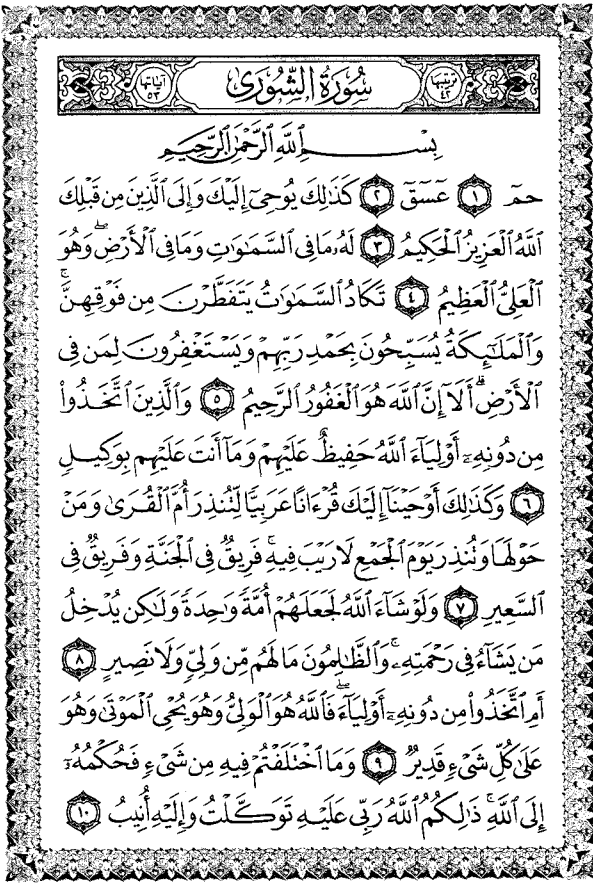 ترتيبها ٤٢ سُورَةُ الشُّورَىٰ آياتها ٥٣
بِسْمِ اللَّهِ الرَّحْمَٰنِ الرَّحِيمِ
حمٓ ١ عٓسٓقٓ ٢ كَذَٰلِكَ يُوحِىٓ إِلَيْكَ وَإِلَى ٱلَّذِينَ مِن قَبْلِكَ
ٱللَّهُ ٱلْعَزِيزُ ٱلْحَكِيمُ ٣ لَهُۥ مَا فِى ٱلسَّمَٰوَٰتِ وَمَا فِى ٱلْأَرْضِۖ وَهُوَ
ٱلْعَلِىُّ ٱلْعَظِيمُ ٤ تَكَادُ ٱلسَّمَٰوَٰتُ يَتَفَطَّرْنَ مِن فَوْقِهِنَّۚ
وَٱلْمَلَٰٓئِكَةُ يُسَبِّحُونَ بِحَمْدِ رَبِّهِمْ وَيَسْتَغْفِرُونَ لِمَن فِى
ٱلْأَرْضِۗ أَلَآ إِنَّ ٱللَّهَ هُوَ ٱلْغَفُورُ ٱلرَّحِيمُ ٥ وَٱلَّذِينَ ٱتَّخَذُوا۟
مِن دُونِهِۦٓ أَوْلِيَآءَ ٱللَّهُ حَفِيظٌ عَلَيْهِمْ وَمَآ أَنتَ عَلَيْهِم بِوَكِيلٍ
٦ وَكَذَٰلِكَ أَوْحَيْنَآ إِلَيْكَ قُرْءَانًا عَرَبِيًّا لِّتُنذِرَ أُمَّ ٱلْقُرَىٰ وَمَنْ
حَوْلَهَا وَتُنذِرَ يَوْمَ ٱلْجَمْعِ لَا رَيْبَ فِيهِۚ فَرِيقٌ فِى ٱلْجَنَّةِ وَفَرِيقٌ فِى
ٱلسَّعِيرِ ٧ وَلَوْ شَآءَ ٱللَّهُ لَجَعَلَهُمْ أُمَّةً وَٰحِدَةً وَلَٰكِن يُدْخِلُ
مَن يَشَآءُ فِى رَحْمَتِهِۦۚ وَٱلظَّٰلِمُونَ مَا لَهُم مِّن وَلِىٍّ وَلَا نَصِيرٍ ٨
أَمِ ٱتَّخَذُوا۟ مِن دُونِهِۦٓ أَوْلِيَآءَۖ فَٱللَّهُ هُوَ ٱلْوَلِىُّ وَهُوَ يُحْىِ ٱلْمَوْتَىٰ وَهُوَ
عَلَىٰ كُلِّ شَىْءٍ قَدِيرٌ ٩ وَمَا ٱخْتَلَفْتُمْ فِيهِ مِن شَىْءٍ فَحُكْمُهُۥٓ
إِلَى ٱللَّهِۚ ذَٰلِكُمُ ٱللَّهُ رَبِّى عَلَيْهِ تَوَكَّلْتُ وَإِلَيْهِ أُنِيبُ ١٠